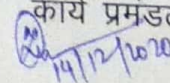 कार्य प्रमंडल
14/12/2020